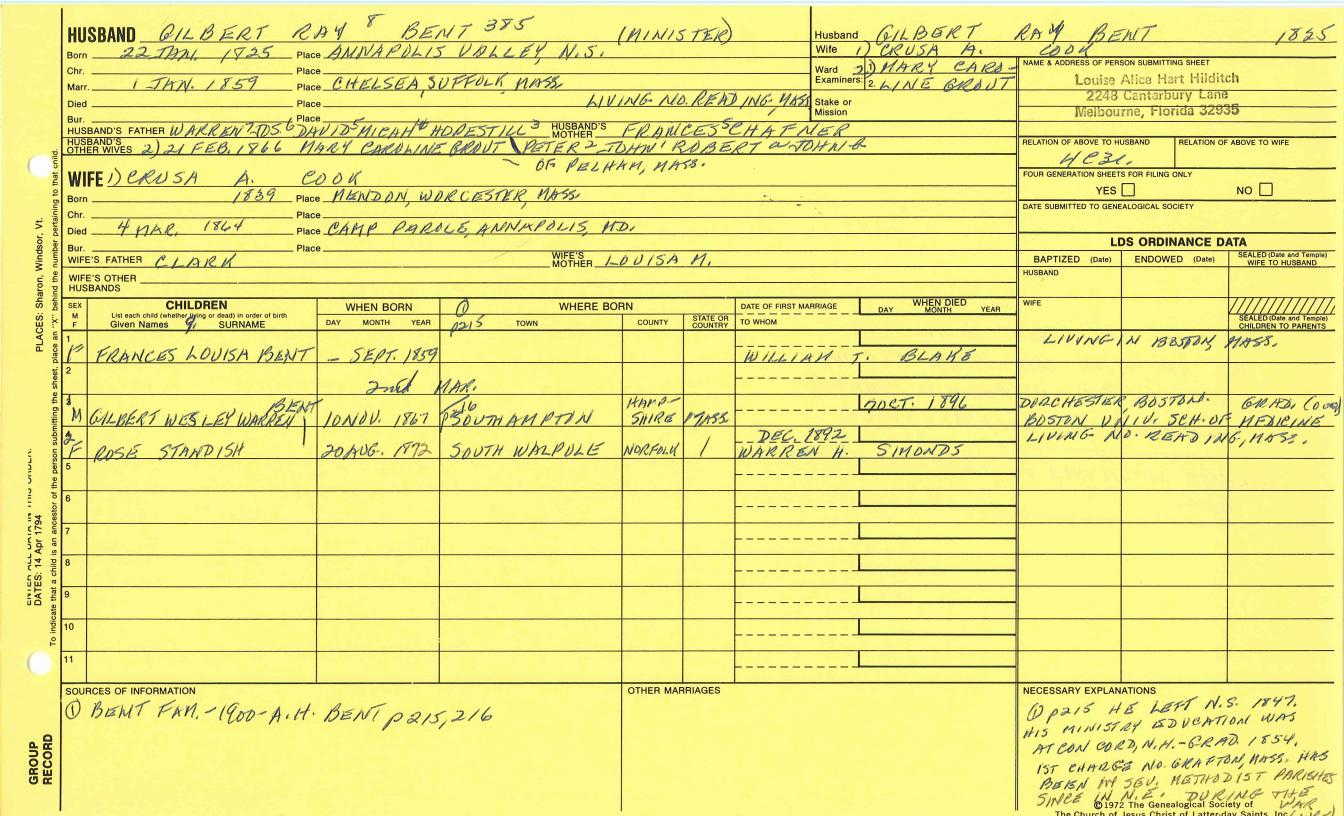 HUSBAND GILBERT RAY 8 BENT 385 (MINISTER)
Born 22 JAN. 1825 Place ANNAPOLIS VALLEY, N.S.
Chr. Place
Marr. 1 JAN. 1859 Place CHELSEA, SUFFOLK, MASS
Died Place LIVING NO. READING, MASS
Bur. Place
HUSBAND'S FATHER WARREN 7 JOS 6 DAVID 5 MICAH 4 HOPESTILL 3 HUSBAND'S MOTHER FRANCES S CHAFNER
HUSBAND'S OTHER WIVES 2) 21 FEB. 1866 MARY CAROLINE GROUT \ PETER 2 JOHN 1 ROBERT JOHN
OF PELHAM, MASS.
WIFE 1) CRUSA A. COOK
Born 1839 Place MENDON, WORCESTER, MASS
Chr. Place
Died 4 MAR. 1864 Place CAMP PAROLE, ANNAPOLIS, MD.
Bur. Place
WIFE'S FATHER CLARK WIFE'S MOTHER LOUISA M.
WIFE'S OTHER HUSBANDS
Husband GILBERT RAY BENT 1825
Wife 1) CRUSA A. COOK
Ward Examiners: 2) 1 MARY CARO-
2 LINE GROUT
Stake or Mission
NAME & ADDRESS OF PERSON SUBMITTING SHEET
Louise Alice Hart Hilditch
2248 Canterbury Lane
Melbourne, Florida 32935
RELATION OF ABOVE TO HUSBAND RELATION OF ABOVE TO WIFE
4C3r.
FOUR GENERATION SHEETS FOR FILING ONLY
YES NO
DATE SUBMITTED TO GENEALOGICAL SOCIETY
LDS ORDINANCE DATA
BAPTIZED (Date) ENDOWED (Date) SEALED (Date and Temple) WIFE TO HUSBAND
HUSBAND
WIFE
SEALED (Date and Temple) CHILDREN TO PARENTS
SEX M F CHILDREN WHEN BORN ① WHERE BORN DATE OF FIRST MARRIAGE WHEN DIED
List each child (whether living or dead) in order of birth
Given Names 9. SURNAME DAY MONTH YEAR p215 TOWN COUNTY STATE OR COUNTRY TO WHOM DAY MONTH YEAR
1 F FRANCES LOUISA BENT - SEPT. 1859 WILLIAM T. BLAKE LIVING IN BOSTON, MASS.
2 2nd MAR.
3 M GILBERT WESLEY WARREN BENT 10 NOV. 1867 SOUTHAMPTON HAMPSHIRE MASS 7 OCT. 1896 DORCHESTER, BOSTON. GRAD. (over)
BOSTON UNIV. SCH. OF MEDICINE
4 F ROSE STANDISH 20 AUG. 1872 SOUTH WALPOLE NORFOLK DEC. 1892 WARREN H. SIMONDS LIVING NO. READING, MASS.
5
6
7
8
9
10
11
SOURCES OF INFORMATION
① BENT FAM. - 1900 - A.H. BENT p215, 216
OTHER MARRIAGES
NECESSARY EXPLANATIONS
① p215 HE LEFT N.S. 1847.
HIS MINISTRY EDUCATION WAS
AT CONCORD, N.H. - GRAD. 1854.
1ST CHARGE NO. GRAFTON, MASS. HAS
BEEN IN SEV. METHODIST PARISHES
SINCE IN N.E. DURING THE
WAR
©1972 The Genealogical Society of
The Church of Jesus Christ of Latter-day Saints, Inc.
PLACES: Sharon, Windsor, Vt.
ENTER ALL DATA IN THIS ORDER:
DATES: 14 Apr 1794
To indicate that a child is an ancestor of the person submitting the sheet, place an "X" behind the number pertaining to that child.
GROUP RECORD